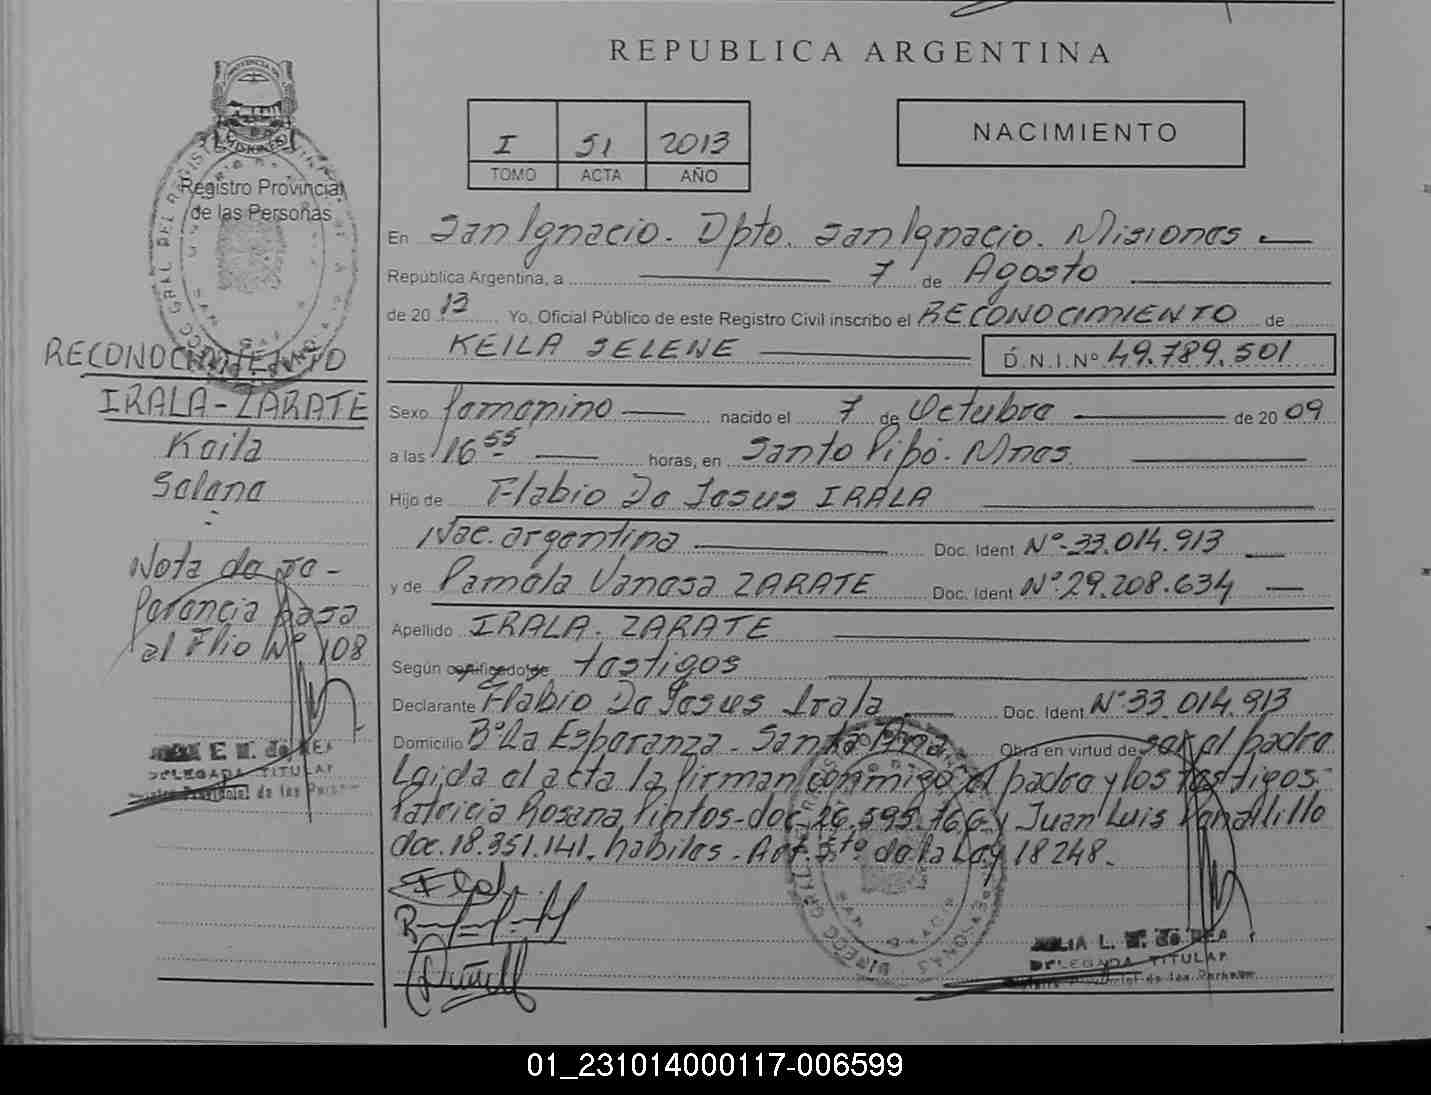 REPUBLICA ARGENTINA
I 51 2013
TOMO ACTA AÑO
NACIMIENTO
Registro Provincial
de las Personas
En San Ignacio. Dpto. San Ignacio. Misiones
República Argentina, a 7 de Agosto
de 2013 Yo, Oficial Público de este Registro Civil inscribo el RECONOCIMIENTO de
KEILA SELENE D.N.I.Nº 49.789.501
Sexo femenino nacido el 7 de Octubre de 2009
a las 16 55 horas, en Santo Pipó. Mnes.
Hijo de Flabio De Jesus IRALA
Nac. argentina Doc. Ident Nº 33.014.913
y de Pamela Vanesa ZARATE Doc. Ident Nº 29.208.634
Apellido IRALA. ZARATE
Según certificado de testigos
Declarante Flabio De Jesus Irala Doc. Ident Nº 33.014.913
Domicilio Bº La Esperanza - Santa Ana Obra en virtud de ser el padre
Leida el acta la firman conmigo el padre y los testigos:
Patricia Rosana Pintos - doc. 26.595.766 y Juan Luis
doc. 18.351.141. habiles. Art. 5to de la Ley 18248.
RECONOCIMIENTO
IRALA-ZARATE
Keila
Selene
Nota de Re-
ferencia pasa
al Flio Nº 108
DELEGADA TITULAR
Registro Provincial de las Personas
JULIA L. de REA
DELEGADA TITULAR
Registro Provincial de las Personas
01_231014000117-006599